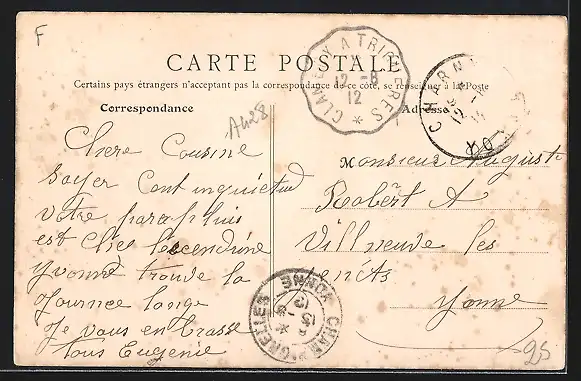 F
CARTE POSTALE
Certains pays étrangers n'acceptant pas la correspondance de ce côté, se renseigner à la Poste
Correspondance
Adresse
CLAMECY A TRIGUERES
12-8
12
CHARNY
Chere Cousine
soyer Cont inquietud
votre parapluis
est chés
Yvonne trouve la
Journee longe
Je vous enbrasse
tous Eugenie
Monsieur Auguste
Robert A
Villneuve les
Yonne
CHAMPIGNELLES YONNE
13
25